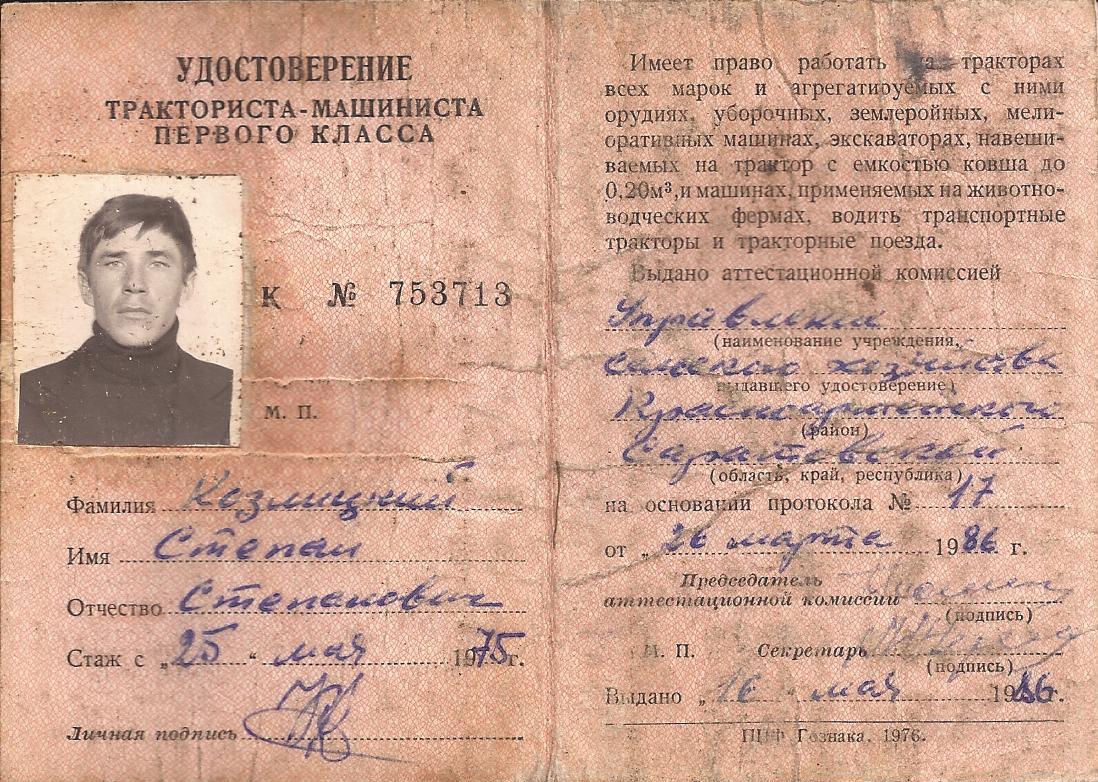 УДОСТОВЕРЕНИЕ
ТРАКТОРИСТА-МАШИНИСТА
ПЕРВОГО КЛАССА
К № 753713
М. П.
Фамилия Козлицкий
Имя Степан
Отчество Степанович
Стаж с „25“ мая 1975г.
Личная подпись
Имеет право работать на тракторах
всех марок и агрегатируемых с ними
орудиях, уборочных, землеройных, мели-
оративных машинах, экскаваторах, навеши-
ваемых на трактор с емкостью ковша до
0,20м³,и машинах, применяемых на животно-
водческих фермах, водить транспортные
тракторы и тракторные поезда.
Выдано аттестационной комиссией
Управления
(наименование учреждения,
сельского хозяйства
выдавшего удостоверение)
Красноармейского
(район)
Саратовской
(область, край, республика)
на основании протокола № 17
от „26 марта 1986 г.
Председатель
аттестационной комиссии
(подпись)
М. П. Секретарь
(подпись)
Выдано „16 “ мая 1986г.
ППФ Гознака. 1976.